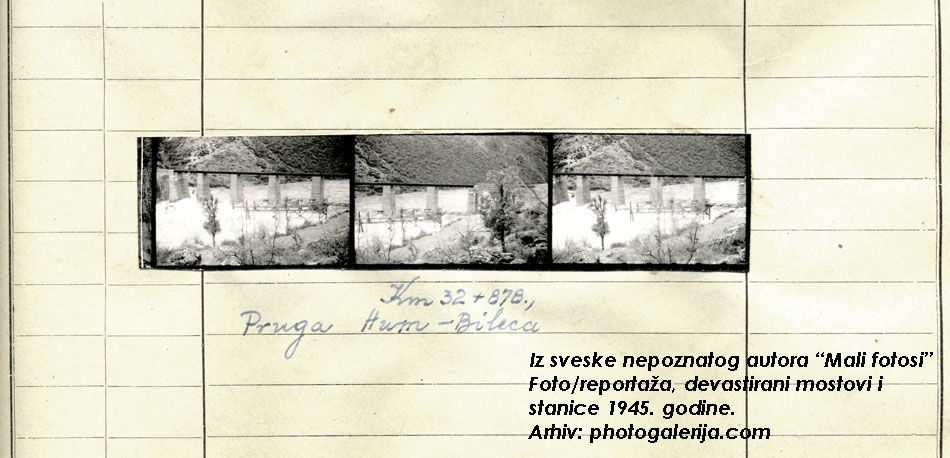 Km 32+878.,
Pruga Hum-Bileca
Iz sveske nepoznatog autora “Mali fotosi”
Foto/reportaža, devastirani mostovi i
stanice 1945. godine.
Arhiv: photogalerija.com